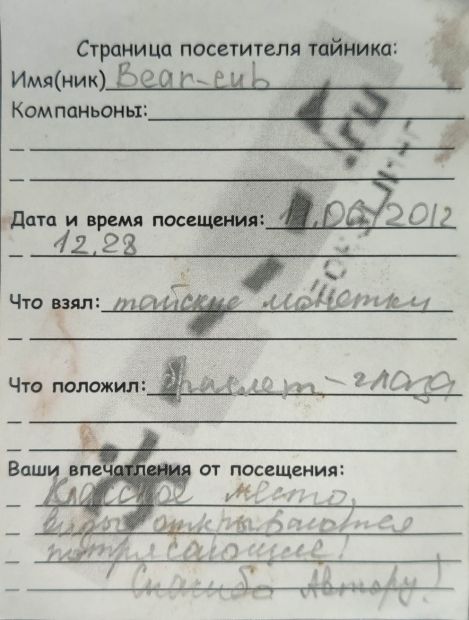 Страница посетителя тайника:
Имя(ник) Bear-cub
Компаньоны:
Дата и время посещения: 11.06/2012
12.28
Что взял: тайские монетки
Что положил: браслет-глаза
Ваши впечатления от посещения:
Классное место,
виды открываются
потрясающие!
Спасибо Автору!
.ru